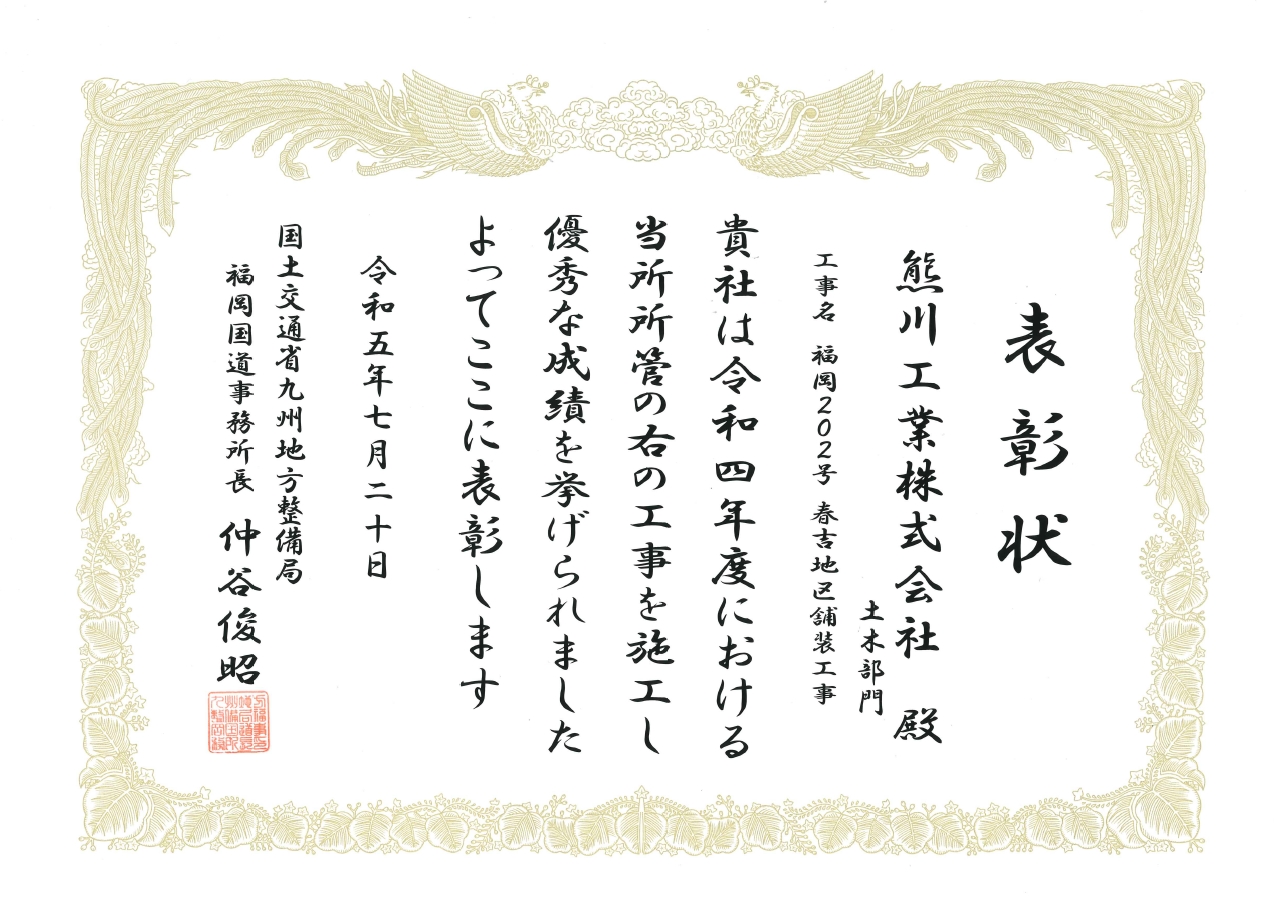 表彰状
熊川工業株式会社 殿
土木部門
工事名 福岡202号 春吉地区舗装工事
貴社は令和四年度における
当所所管の右の工事を施工し
優秀な成績を挙げられました
よってここに表彰します
令和五年七月二十日
国土交通省九州地方整備局
福岡国道事務所長 仲谷俊昭